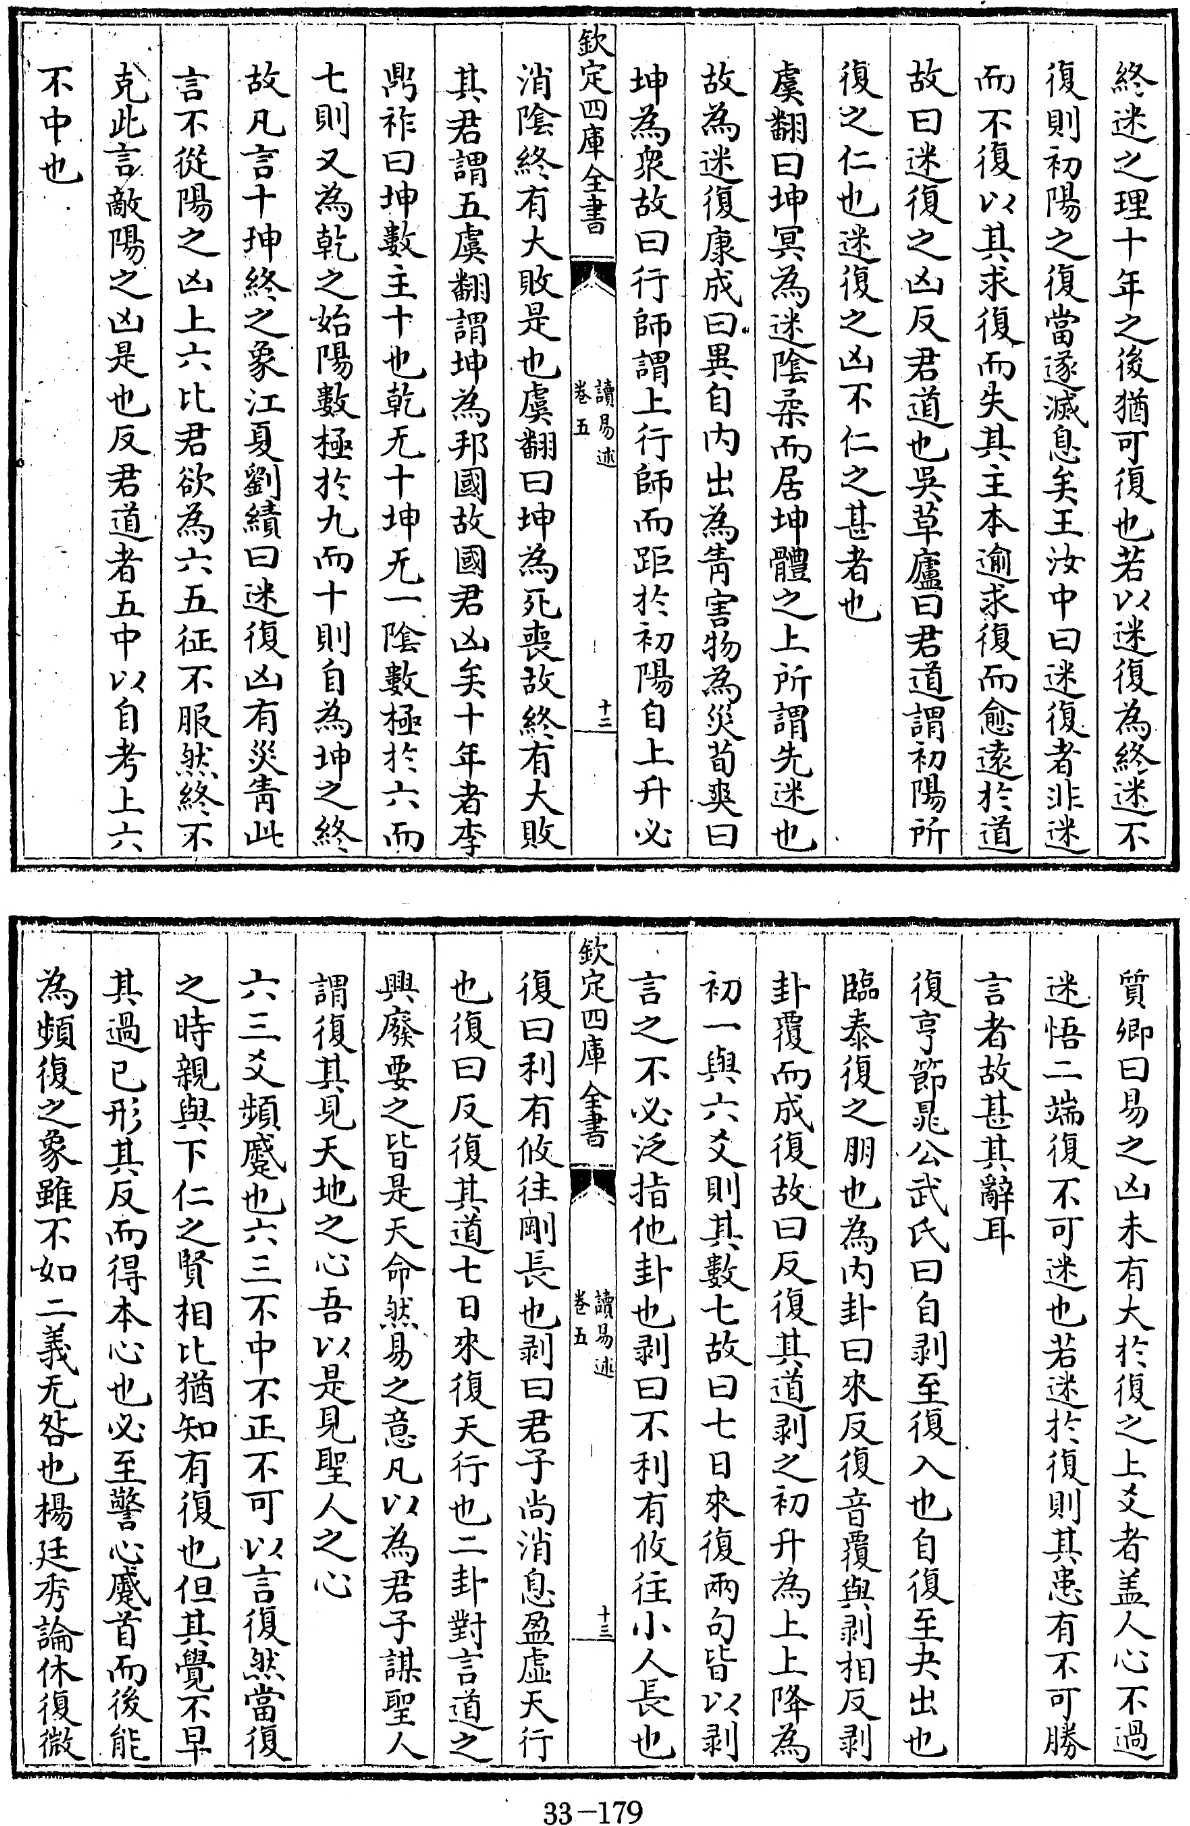 終迷之理十年之後猶可復也若以迷復為終迷不
復則初陽之復當遂滅息矣王汝中曰迷復者非迷
而不復以其求復而失其主本逾求復而愈遠於道
故曰迷復之凶反君道也吳草廬曰君道謂初陽所
復之仁也迷復之凶不仁之甚者也
虞翻曰坤冥為迷陰柔而居坤體之上所謂先迷也
故為迷復康成曰異自内出為眚害物為災荀爽曰
坤為衆故曰行師謂上行師而距於初陽自上升必
欽定四庫全書
讀易述
卷五
十二
消陰終有大敗是也虞翻曰坤為死喪故終有大敗
其君謂五虞翻謂坤為邦國故國君凶矣十年者李
鼎祚曰坤數主十也乾无十坤无一陰數極於六而
七則又為乾之始陽數極於九而十則自為坤之終
故凡言十坤終之象江夏劉績曰迷復凶有災眚此
言不從陽之凶上六比君欲為六五征不服然終不
克此言敵陽之凶是也反君道者五中以自考上六
不中也
質卿曰易之凶未有大於復之上爻者盖人心不過
迷悟二端復不可迷也若迷於復則其患有不可勝
言者故甚其辭耳
復亨節晁公武氏曰自剥至復入也自復至夬出也
臨泰復之朋也為内卦曰來反復音覆與剥相反剥
卦覆而成復故曰反復其道剥之初升為上上降為
初一與六爻則其數七故曰七日來復兩句皆以剥
言之不必泛指他卦也剥曰不利有攸往小人長也
欽定四庫全書
讀易述
卷五
十三
復曰利有攸往剛長也剥曰君子尚消息盈虛天行
也復曰反復其道七日來復天行也二卦對言道之
興廢要之皆是天命然易之意凡以為君子謀聖人
謂復其見天地之心吾以是見聖人之心
六三爻頻蹙也六三不中不正不可以言復然當復
之時親與下仁之賢相比猶知有復也但其覺不早
其過已形其反而得本心也必至警心蹙首而後能
為頻復之象雖不如二義无咎也楊廷秀論休復微
33-179